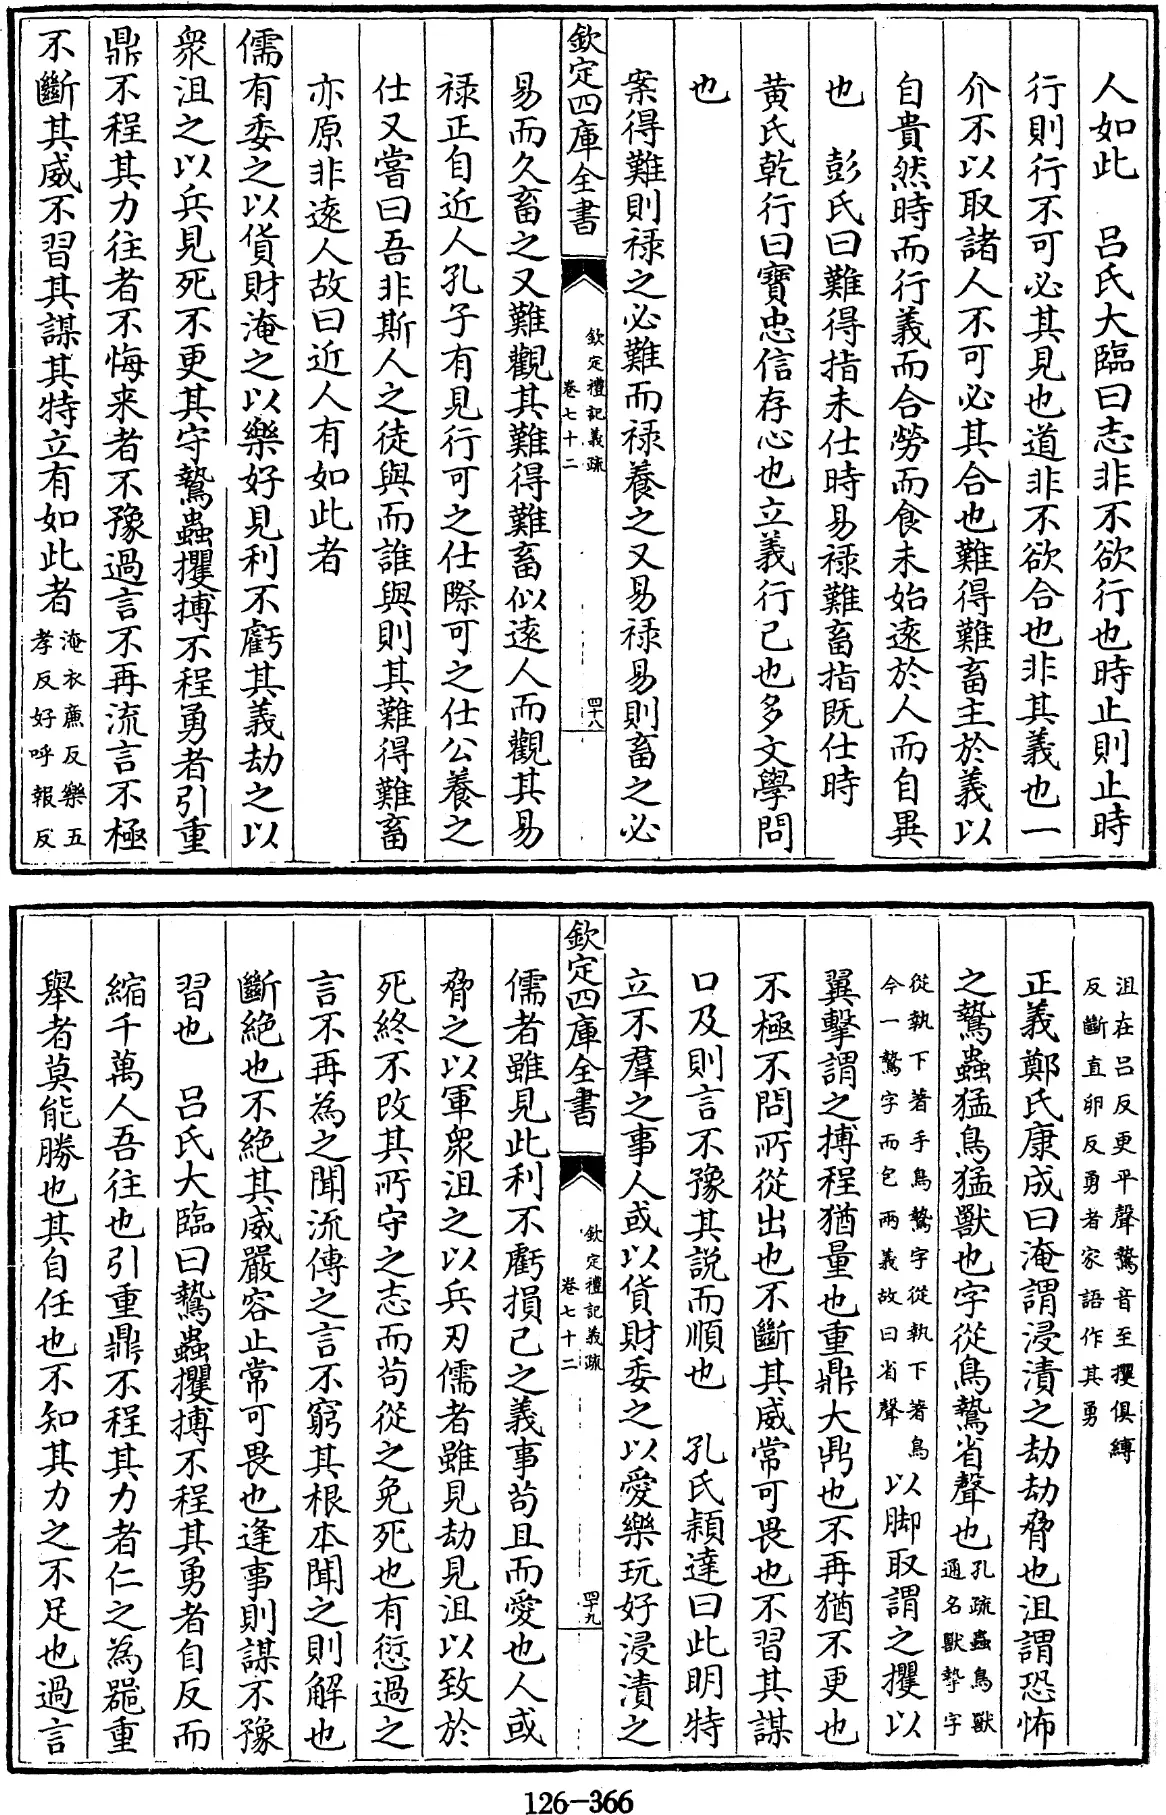 人如此　呂氏大臨曰志非不欲行也時止則止時
行則行不可必其見也道非不欲合也非其義也一
介不以取諸人不可必其合也難得難畜主於義以
自貴然時而行義而合勞而食未始遠於人而自異
也　彭氏曰難得指未仕時易祿難畜指既仕時
黄氏乾行曰寶忠信存心也立義行己也多文學問
也
案得難則祿之必難而祿養之又易祿易則畜之必
欽定四庫全書
欽定禮記義疏
卷七十二
四十八
易而久畜之又難觀其難得難畜似遠人而觀其易
祿正自近人孔子有見行可之仕際可之仕公養之
仕又嘗曰吾非斯人之徒與而誰與則其難得難畜
亦原非遠人故曰近人有如此者
儒有委之以貨財淹之以樂好見利不虧其義劫之以
衆沮之以兵見死不更其守鷙蟲攫搏不程勇者引重
鼎不程其力往者不悔来者不豫過言不再流言不極
不斷其威不習其謀其特立有如此者
淹衣廉反樂五
孝反好呼報反
沮在吕反更平聲鷙音至攫俱縛
反斷直卵反勇者家語作其勇
正義鄭氏康成曰淹謂浸漬之劫劫脅也沮謂恐怖
之鷙蟲猛鳥猛獸也字從鳥鷙省聲也
孔疏蟲鳥獸
通名獸摯字
從執下著手鳥鷙字從執下著鳥
今一鷙字而包兩義故曰省聲
以脚取謂之攫以
翼擊謂之搏程猶量也重鼎大鼎也不再猶不更也
不極不問所從出也不斷其威常可畏也不習其謀
口及則言不豫其説而順也　孔氏穎達曰此明特
立不羣之事人或以貨財委之以愛樂玩好浸漬之
欽定四庫全書
欽定禮記義疏
卷七十二
四十九
儒者雖見此利不虧損己之義事苟且而愛也人或
脅之以軍衆沮之以兵刃儒者雖見劫見沮以致於
死終不改其所守之志而苟從之免死也有愆過之
言不再為之聞流傳之言不窮其根本聞之則解也
斷絶也不絶其威嚴容止常可畏也逢事則謀不豫
習也　呂氏大臨曰鷙蟲攫搏不程其勇者自反而
縮千萬人吾往也引重鼎不程其力者仁之為器重
舉者莫能勝也其自任也不知其力之不足也過言
126-366